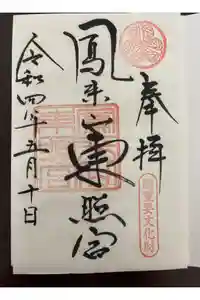 奉拝
國重要文化財
鳳来山東照宮
令和四年五月十日